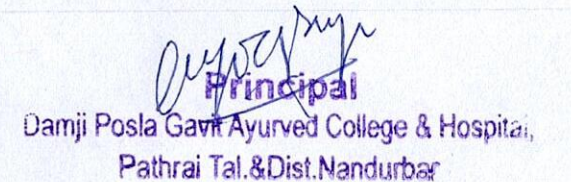 Principal
Damji Posla Gavit Ayurved College & Hospital,
Pathrai Tal.&Dist.Nandurbar